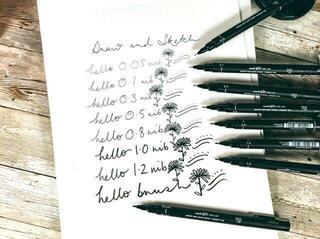 Draw and Sketch
hello 0.05 nib
hello 0.1 nib
hello 0.3 nib
hello 0.5 nib
hello 0.8 nib
hello 1.0 nib
hello 1.2 nib
hello brush